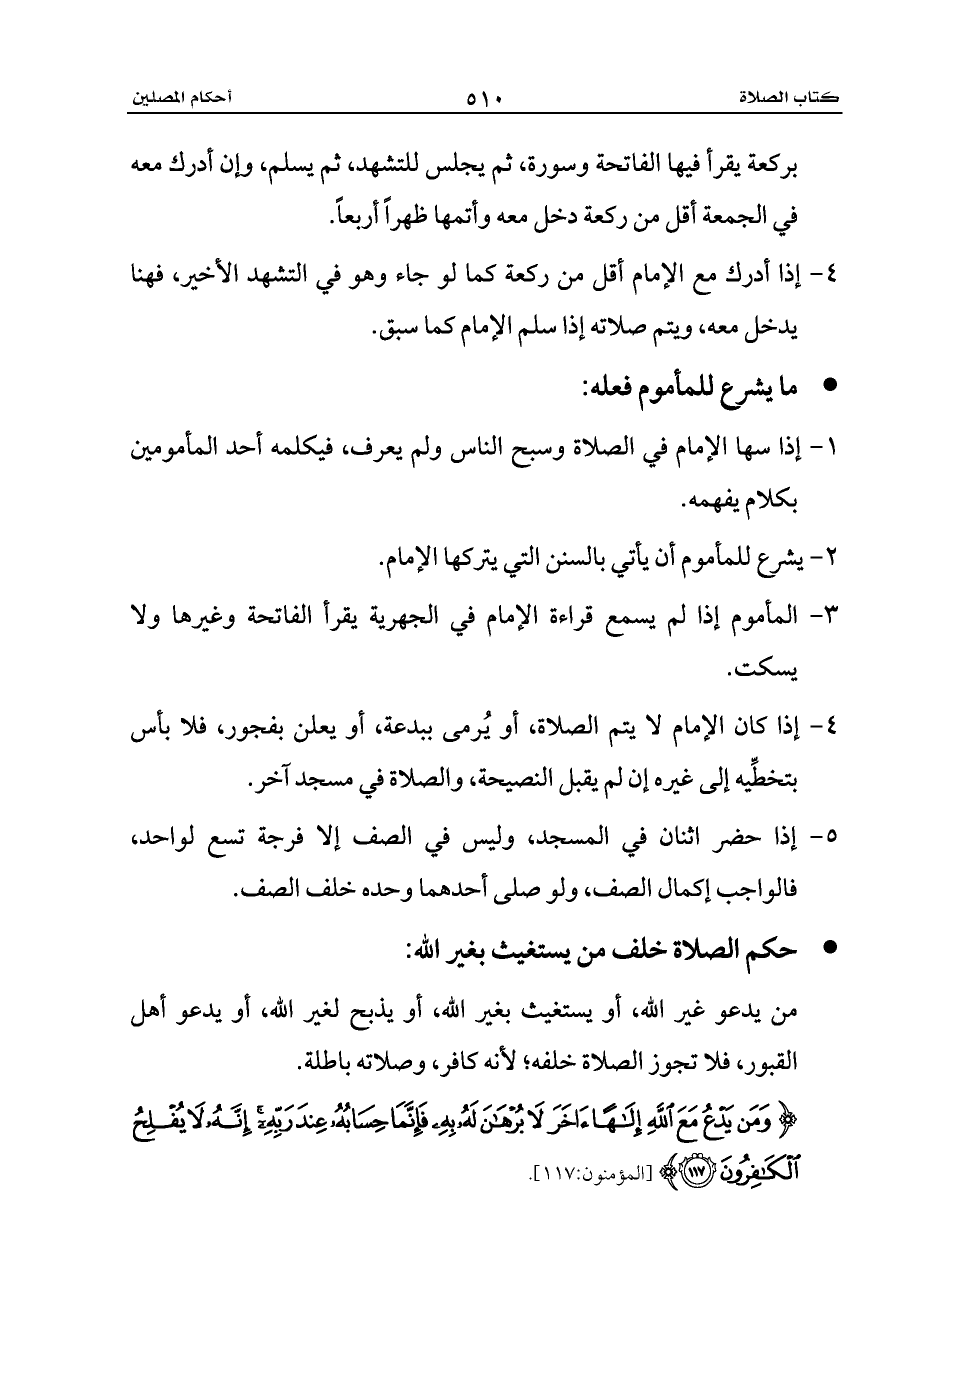 كتاب الصلاة ٥١٠ أحكام المصلين
بركعة يقرأ فيها الفاتحة وسورة، ثم يجلس للتشهد، ثم يسلم، وإن أدرك معه
في الجمعة أقل من ركعة دخل معه وأتمها ظهراً أربعاً.
٤- إذا أدرك مع الإمام أقل من ركعة كما لو جاء وهو في التشهد الأخير، فهنا
يدخل معه، ويتم صلاته إذا سلم الإمام كما سبق.
• ما يشرع للمأموم فعله:
١- إذا سها الإمام في الصلاة وسبح الناس ولم يعرف، فيكلمه أحد المأمومين
بكلام يفهمه.
٢- يشرع للمأموم أن يأتي بالسنن التي يتركها الإمام.
٣- المأموم إذا لم يسمع قراءة الإمام في الجهرية يقرأ الفاتحة وغيرها ولا
يسكت.
٤- إذا كان الإمام لا يتم الصلاة، أو يُرمى ببدعة، أو يعلن بفجور، فلا بأس
بتخطِّيه إلى غيره إن لم يقبل النصيحة، والصلاة في مسجد آخر.
٥- إذا حضر اثنان في المسجد، وليس في الصف إلا فرجة تسع لواحد،
فالواجب إكمال الصف، ولو صلى أحدهما وحده خلف الصف.
• حكم الصلاة خلف من يستغيث بغير الله:
من يدعو غير الله، أو يستغيث بغير الله، أو يذبح لغير الله، أو يدعو أهل
القبور، فلا تجوز الصلاة خلفه؛ لأنه كافر، وصلاته باطلة.
﴿ وَمَن يَدْعُ مَعَ ٱللَّهِ إِلَٰهًا ءَاخَرَ لَا بُرْهَٰنَ لَهُۥ بِهِۦ فَإِنَّمَا حِسَابُهُۥ عِندَ رَبِّهِۦٓ ۚ إِنَّهُۥ لَا يُفْلِحُ
ٱلْكَٰفِرُونَ ١١٧ ﴾ [المؤمنون:١١٧].